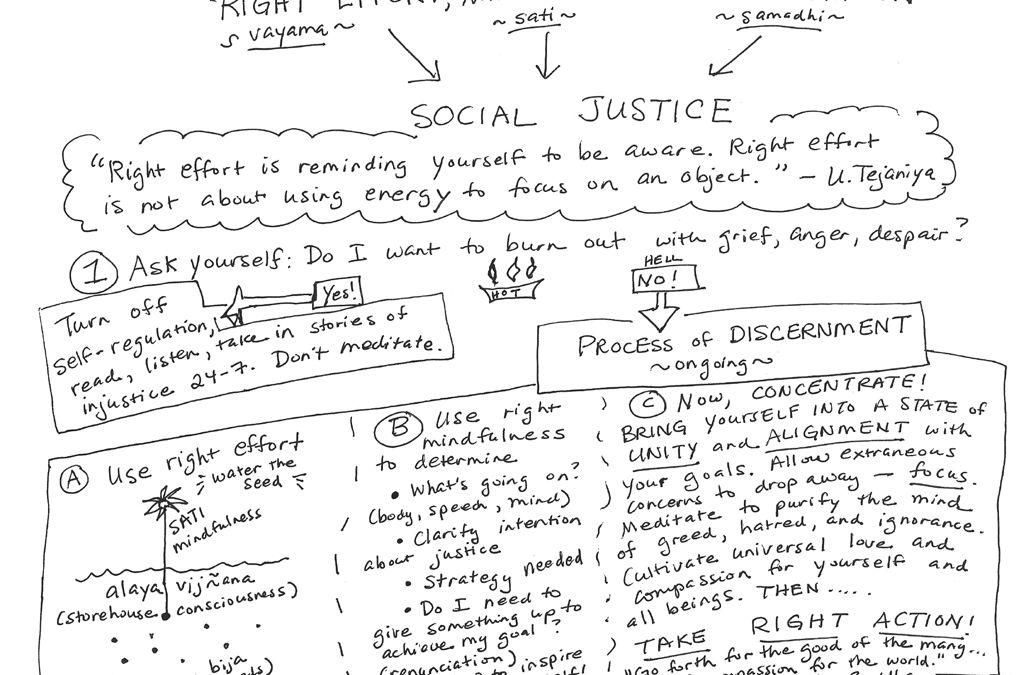 "RIGHT EFFORT,
~ vayama ~
~ sati ~
~ samadhi ~
SOCIAL JUSTICE
"Right effort is reminding yourself to be aware. Right effort
is not about using energy to focus on an object." – U. Tejaniya
1 Ask yourself: Do I want to burn out with grief, anger, despair?
HOT
Yes!
HELL
NO!
Turn off
self-regulation,
read, listen, take in stories of
injustice 24-7. Don't meditate.
PROCESS of DISCERNMENT
~ ongoing ~
A Use right effort
water the
seed
SATI
mindfulness
alaya vijñana
(storehouse consciousness)
bija
B Use right
mindfulness
to determine
• What's going on?
(body, speech, mind)
• Clarify intention
about justice
• Strategy needed
• Do I need to
give something up to
achieve my goal?
(renunciation)
to inspire
C Now, CONCENTRATE!
BRING YOURSELF INTO A STATE of
UNITY and ALIGNMENT with
your goals. Allow extraneous
concerns to drop away – focus.
Meditate to purify the mind
of greed, hatred, and ignorance.
Cultivate universal love and
compassion for yourself and
all beings. THEN.....
TAKE RIGHT ACTION!
"Go forth for the good of the many...
compassion for the world."